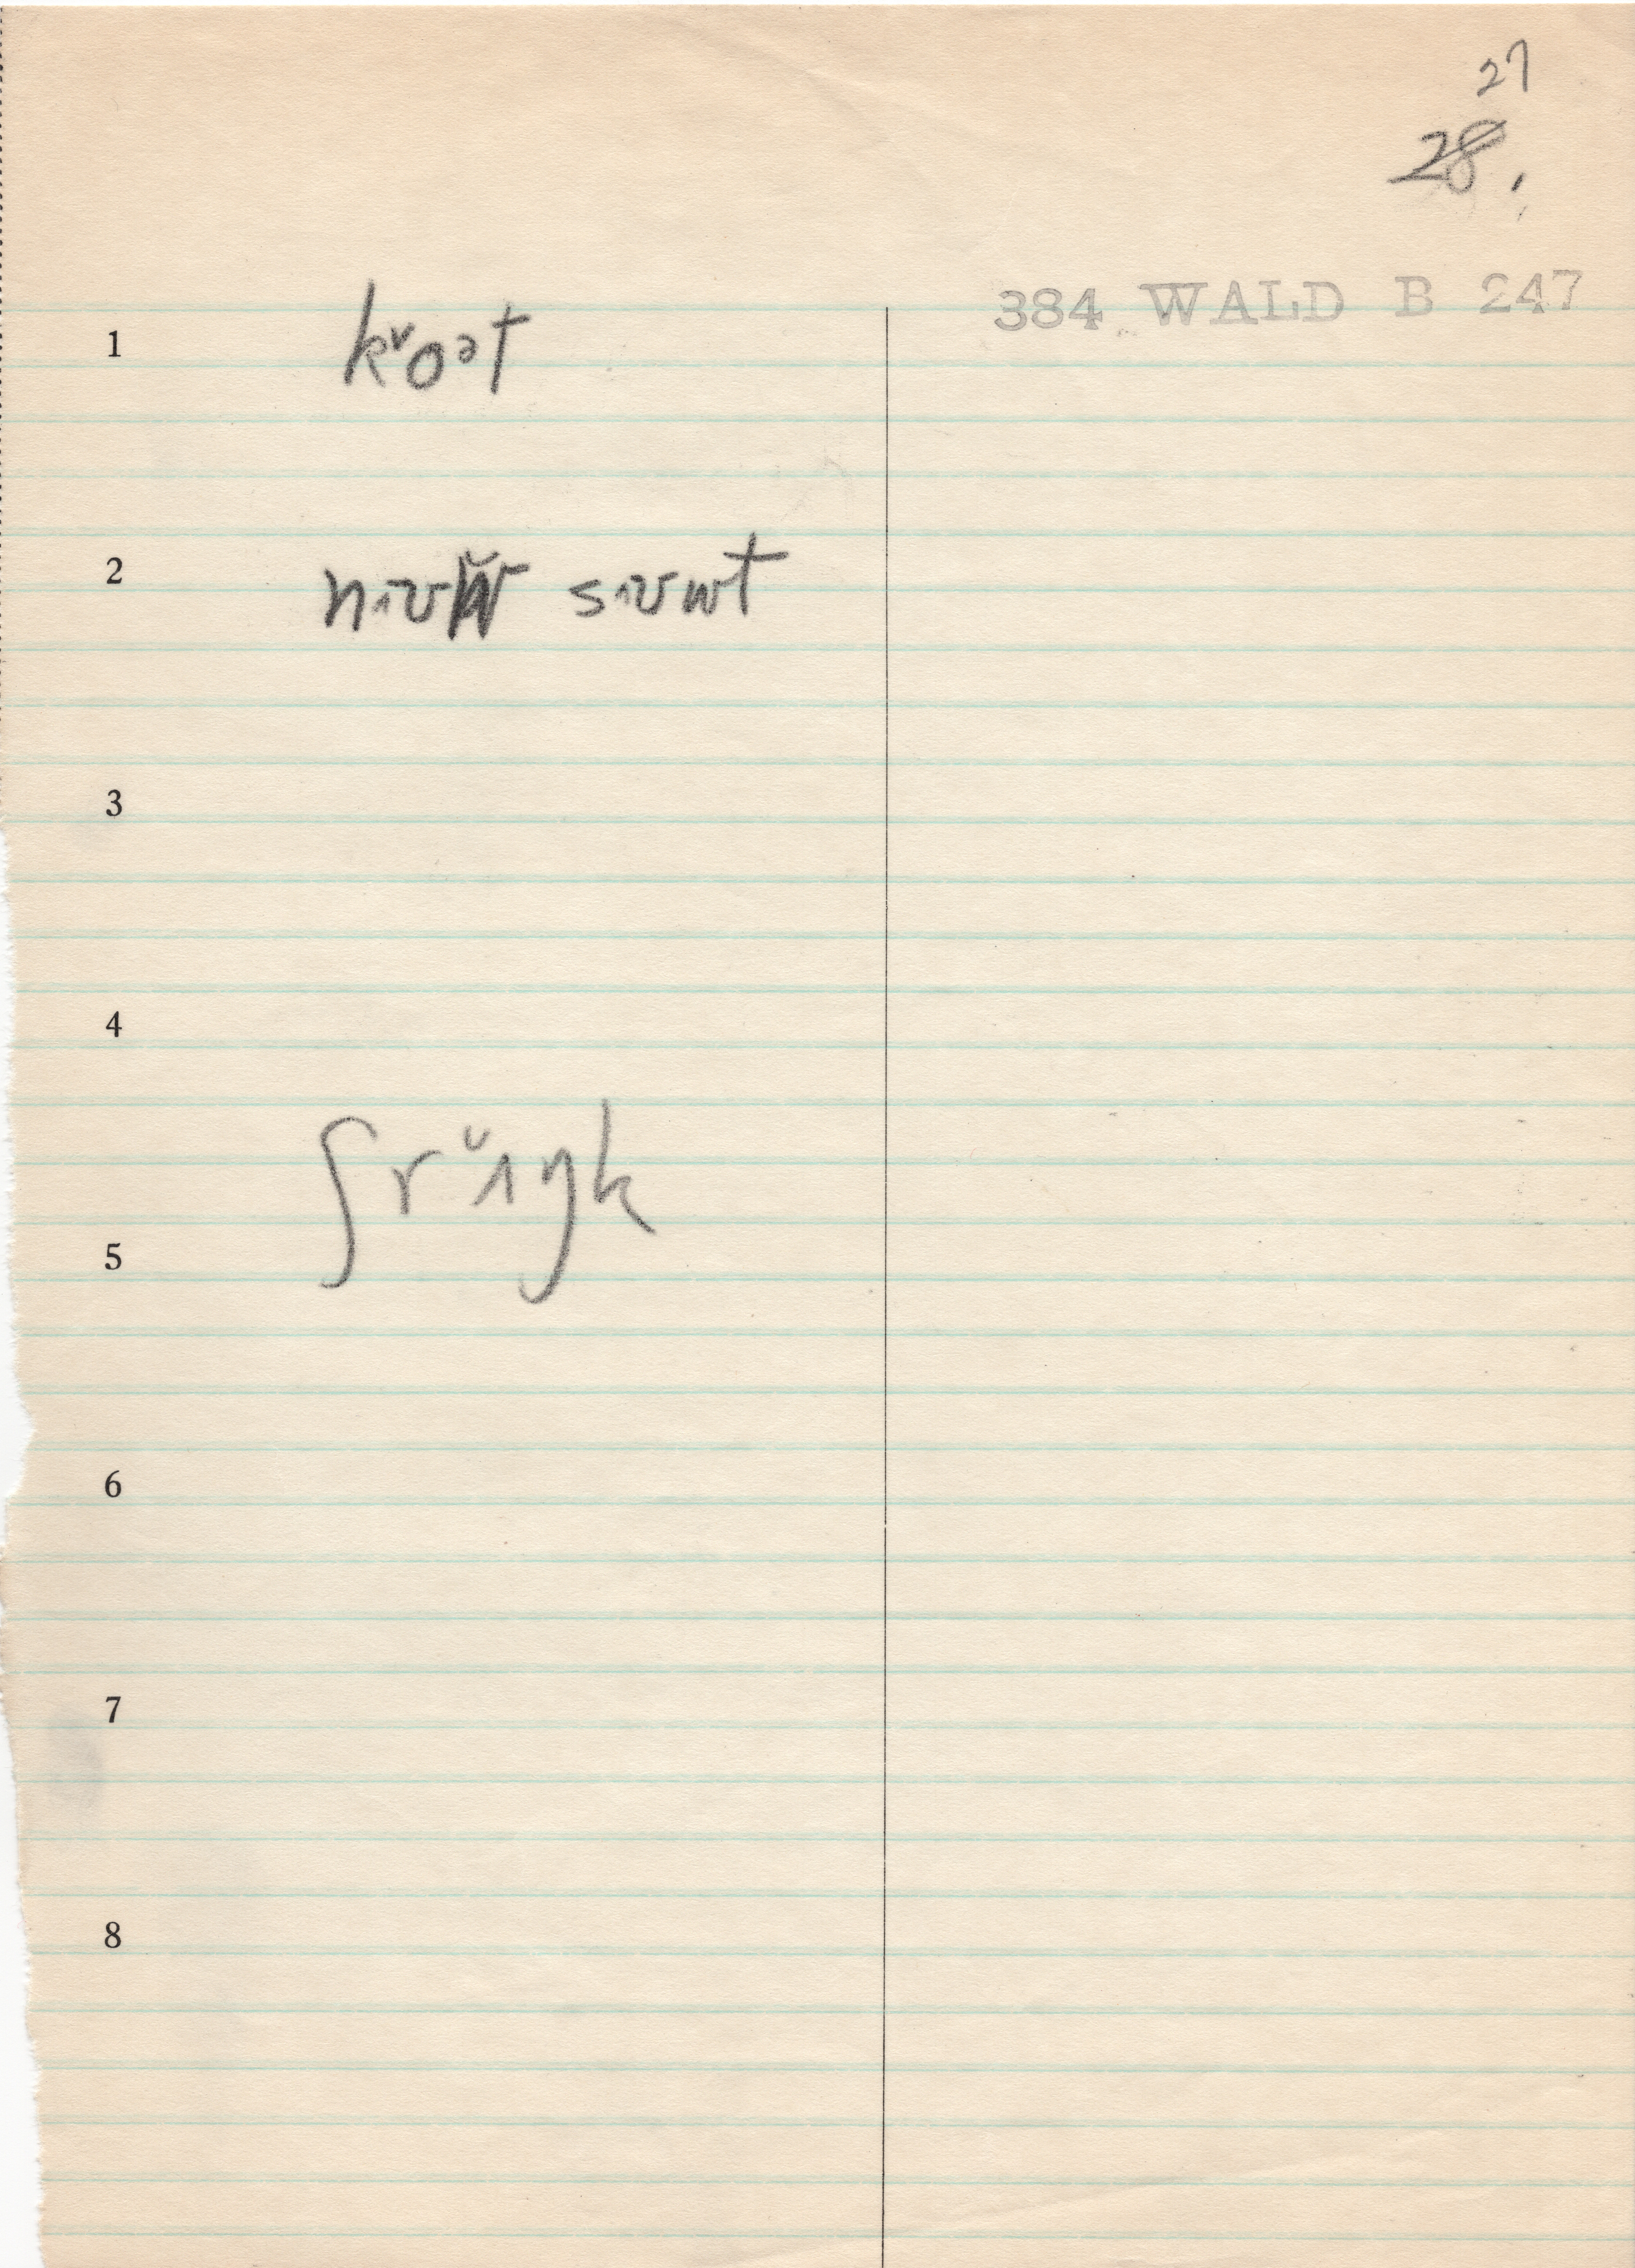 27
28.
384 WALD B 247
1 kᵛoᵊt
2 sɪʊɯt
3
4
ʃrɪ̆ŋk
5
6
7
8